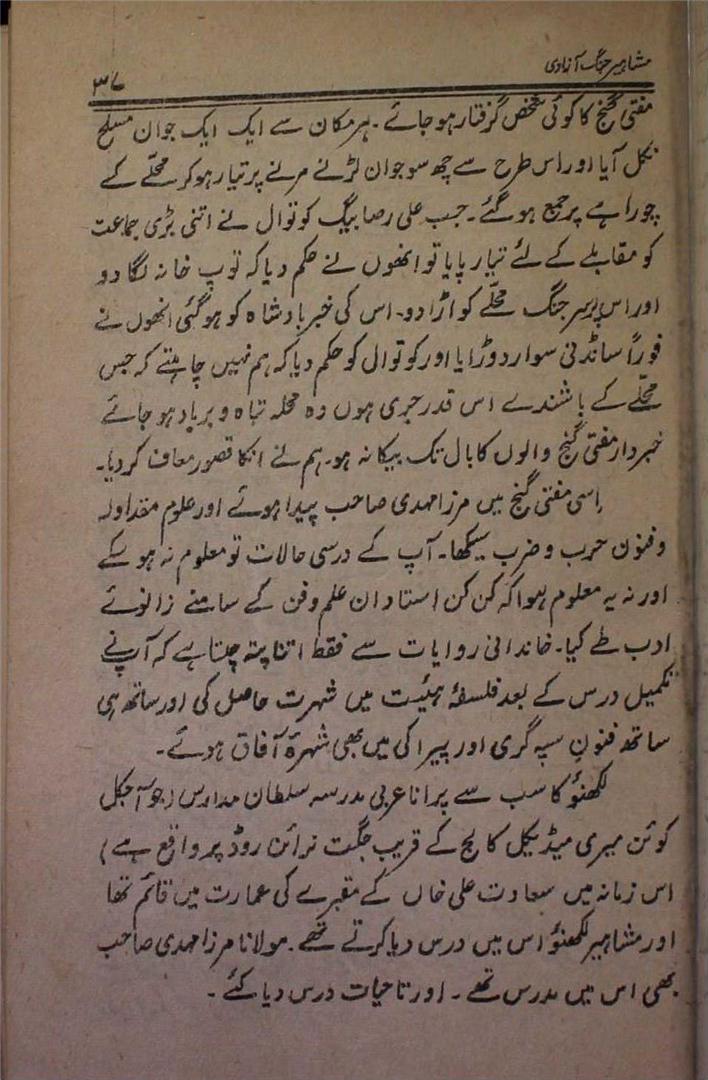 مشاہیر جنگ آزادی
۳۷
مفتی گنج کا کوئی شخص گرفتار ہو جائے۔ ہر مکان سے ایک ایک جوان مسلح
نکل آیا اور اس طرح سے چھ سو جوان لڑنے مرنے پر تیار ہو کر محلّے کے
چوراہے پر جمع ہو گئے۔ جب علی رضا بیگ کوتوال نے اتنی بڑی جماعت
کو مقابلے کے لئے تیار پایا تو انھوں نے حکم دیا کہ توپ خانہ لگا دو
اور اس برسر جنگ محلّے کو اڑا دو۔ اس کی خبر بادشاہ کو ہو گئی انھوں نے
فوراً سانڈنی سوار دوڑایا اور کوتوال کو حکم دیا کہ ہم نہیں چاہتے کہ جس
محلّے کے باشندے اس قدر جری ہوں وہ محلہ تباہ و برباد ہو جائے
خبردار مفتی گنج والوں کا بال تک بیکا نہ ہو۔ ہم نے انکا قصور معاف کر دیا۔
اسی مفتی گنج میں مرزا مہدی صاحب پیدا ہوئے اور علوم متداولہ
و فنون حرب و ضرب سیکھا۔ آپ کے درسی حالات تو معلوم نہ ہو سکے
اور نہ یہ معلوم ہوا کہ کن کن استادان علم و فن کے سامنے زانوئے
ادب طے کیا۔ خاندانی روایات سے فقط اتنا پتہ چلتا ہے کہ آپ نے
تکمیل درس کے بعد فلسفۂ ہیئت میں شہرت حاصل کی اور ساتھ ہی
ساتھ فنونِ سپہ گری اور پیراکی میں بھی شہرۂ آفاق ہوئے۔
لکھنؤ کا سب سے پرانا عربی مدرسہ سلطان مدارس (جو آجکل
کوئن میری میڈیکل کالج کے قریب جگت نرائن روڈ پر واقع ہے)
اس زمانہ میں سعادت علی خاں کے مقبرے کی عمارت میں قائم تھا
اور مشاہیر لکھنؤ اس میں درس دیا کرتے تھے۔ مولانا مرزا مہدی صاحب
بھی اس میں مدرس تھے۔ اور تا حیات درس دیا کئے۔